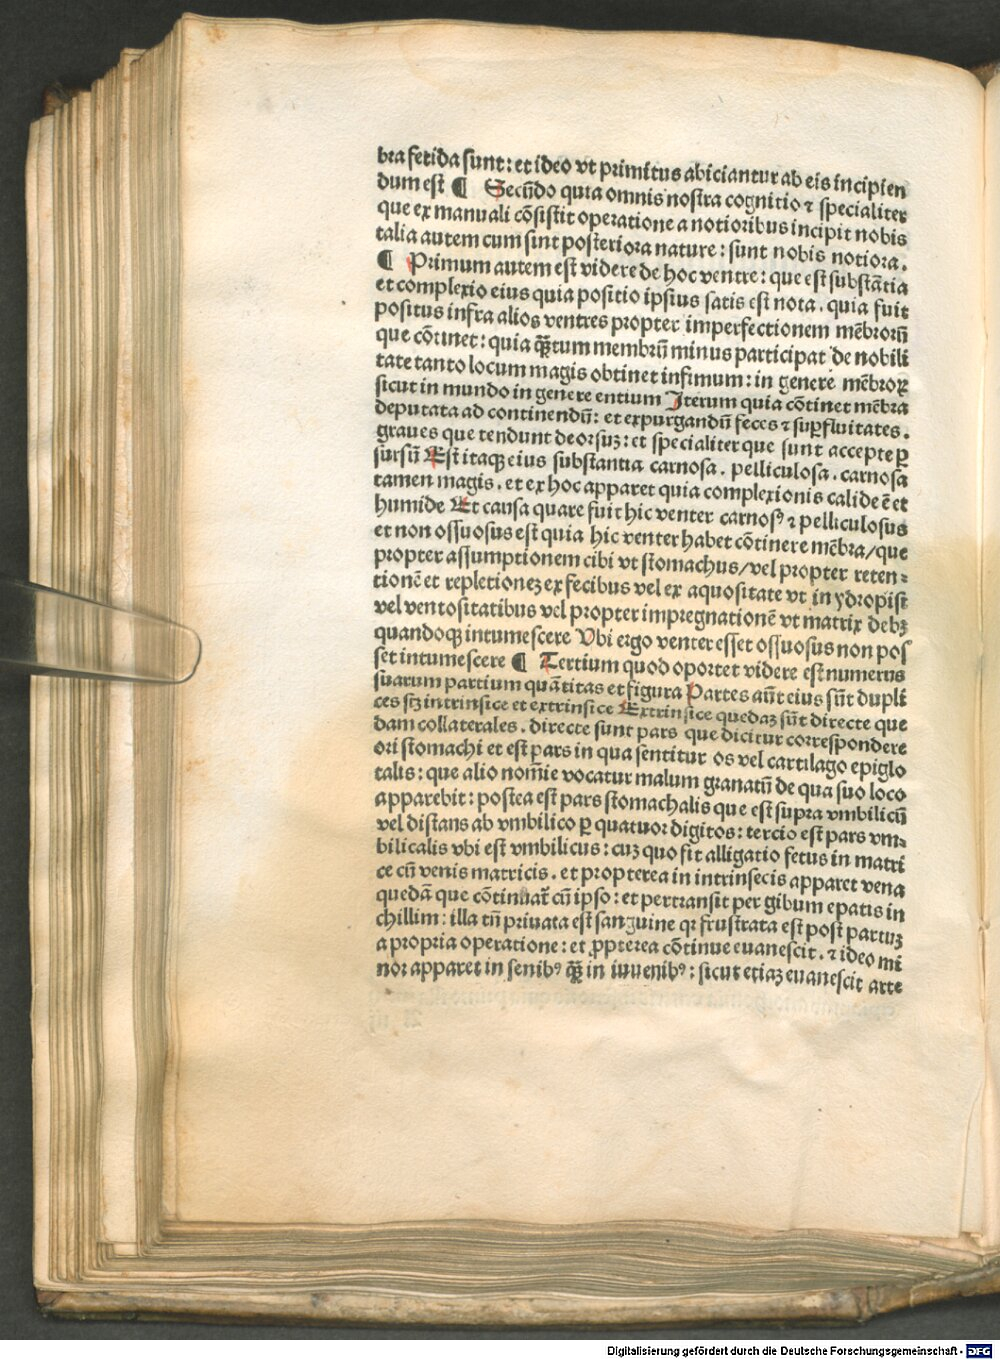 bra fetida sunt: et ideo vt primitus abiciantur ab eis incipien
dum est ¶ Secũdo quia omnis nostra cognitio ⁊ specialiter
que ex manuali cõsistit operatione a notioribus incipit nobis
talia autem cum sint posteriora nature: sunt nobis notiora.
¶ Primum autem est videre de hoc ventre: que est substãtia
et complexio eius quia positio ipsius satis est nota. quia fuit
positus infra alios ventres propter imperfectionem mẽbrorũ
que cõtinet: quia q̃tum membrũ minus participat de nobili
tate tanto locum magis obtinet infimum: in genere mẽbroꝝ
sicut in mundo in genere entium Iterum quia cõtinet mẽbra
deputata ad continendũ: et expurgandũ feces ⁊ suꝑfluitates.
graues que tendunt deorsuꝫ: et specialiter que sunt accepte ꝑ
sursũ Est itaqꝫ eius substantia carnosa. pelliculosa. carnosa
tamen magis. et ex hoc apparet quia complexionis calide ẽ et
humide Et causa quare fuit hic venter carnosꝰ ⁊ pelliculosus
et non ossuosus est quia hic venter habet cõtinere mẽbra/que
propter assumptionem cibi vt stomachus/vel propter reten⸗
tionẽ et repletioneꝫ ex fecibus vel ex aquositate vt in ydropisi
vel ventositatibus vel propter impregnationẽ vt matrix debꝫ
quandoqꝫ intumescere Vbi ergo venter esset ossuosus non pos
set intumescere ¶ Tertium quod oportet videre est numerus
suarum partium quãtitas et figura Partes aũt eius sũt dupli
ces sꝫ intrinsice et extrinsice Extrinsice quedaꝫ sũt directe que
dam collaterales. directe sunt pars que dicitur correspondere
ori stomachi et est pars in qua sentitur os vel cartilago epiglo
talis: que alio nomĩe vocatur malum granatũ de qua suo loco
apparebit: postea est pars stomachalis que est supra vmbilicũ
vel distans ab vmbilico ꝑ quatuor digitos: tercio est pars vm⸗
bilicalis vbi est vmbilicus: cuꝫ quo fit alligatio fetus in matri
ce cũ venis matricis. et propterea in intrinsecis apparet vena
quedã que cõtinuat̃ cũ ipso: et pertransit per gibum epatis in
chillim: illa tñ priuata est sanguine qꝛ frustrata est post partuꝫ
a propria operatione: et ꝓpterea cõtinue euanescit. ⁊ ideo mi
nor apparet in senibꝰ q̃ in iuuenibꝰ: sicut etiaꝫ euanescit arte
Digitalisierung gefördert durch die Deutsche Forschungsgemeinschaft - DFG